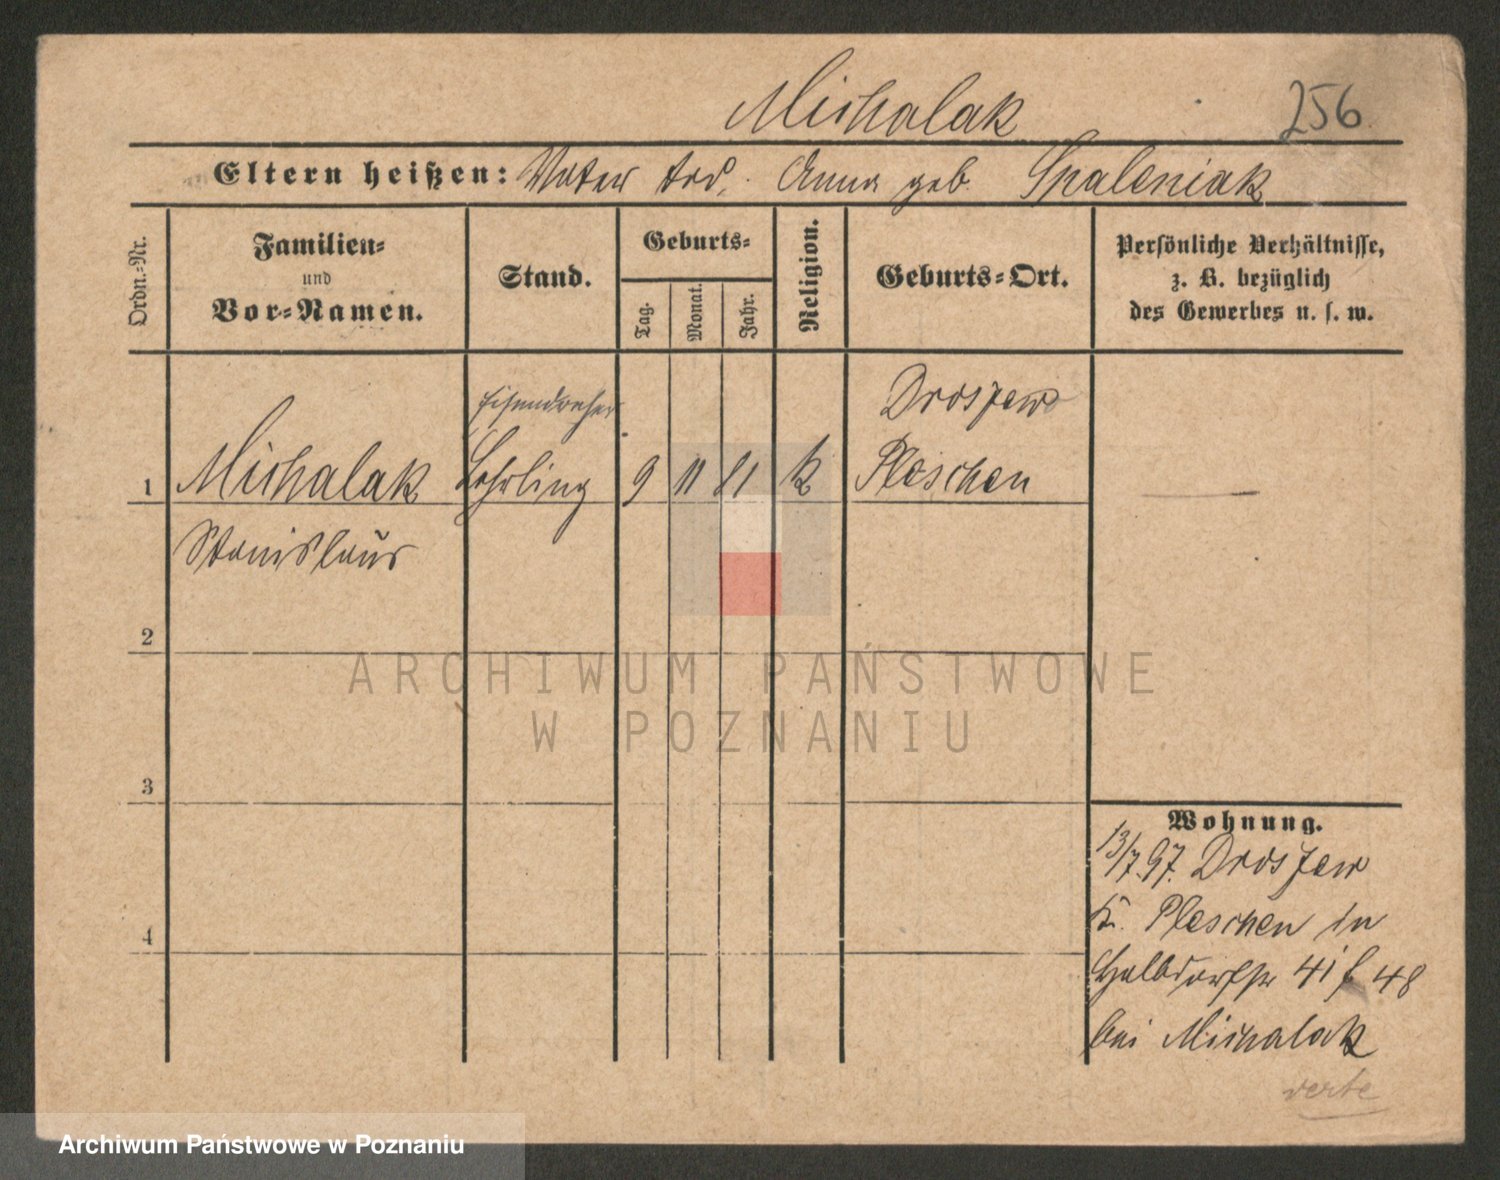 Michalak
256
Eltern heißen: Vater tod. Anna geb. Spaleniak
Ordn.=Nr.
Familien=
und
Vor=Namen.
Stand.
Geburts=
Tag.
Monat.
Jahr.
Religion.
Geburts=Ort.
Persönliche Verhältnisse,
z. B. bezüglich
des Gewerbes u. s. w.
1
Michalak
Stanislaus
Eisendreher
Lehrling
9
11
81
k
Droszew
Pleschen
2
3
4
Wohnung.
13/7 97. Droszew
K. Pleschen in
Halbdorfstr 41 48
bei Michalak
verte
ARCHIWUM PAŃSTWOWE
W POZNANIU
Archiwum Państwowe w Poznaniu